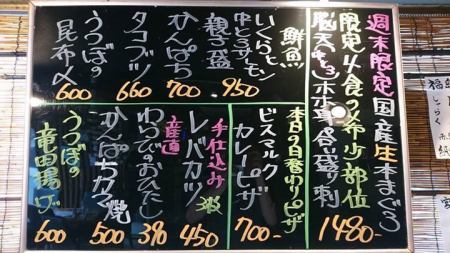 週末限定国産生本まぐろ
限定4食の希少部位
脳天(中とろ)ホホ身各盛り刺
1480-
鮮魚
いくらとトン
中とろサーモン
親子盛
950
かんぱち
700
タコブツ
660
うつぼの
昆布〆
600
本日の日替りピザ
ビスマルク
カレーピザ
700-
手仕込み
レバカツ
450
産直
わらびのおひたし
390
かんぱちカマ焼
500
うつぼの
竜田揚げ
600